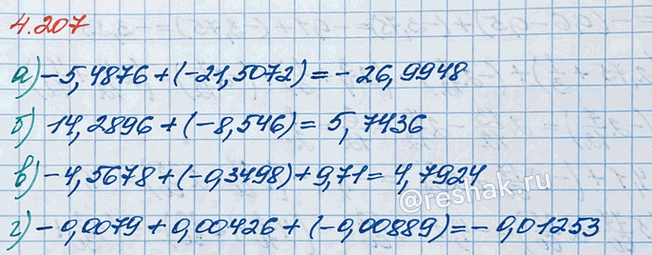 4.207
а) -5,4876 + (-21,5072) = - 26,9948
б) 14,2896 + (-8,546) = 5,7436
в) -4,5678 + (-0,3498) + 9,71 = 4,7924
©reshak.ru
г) -0,0079 + 0,00426 + (-0,00889) = - 0,01253